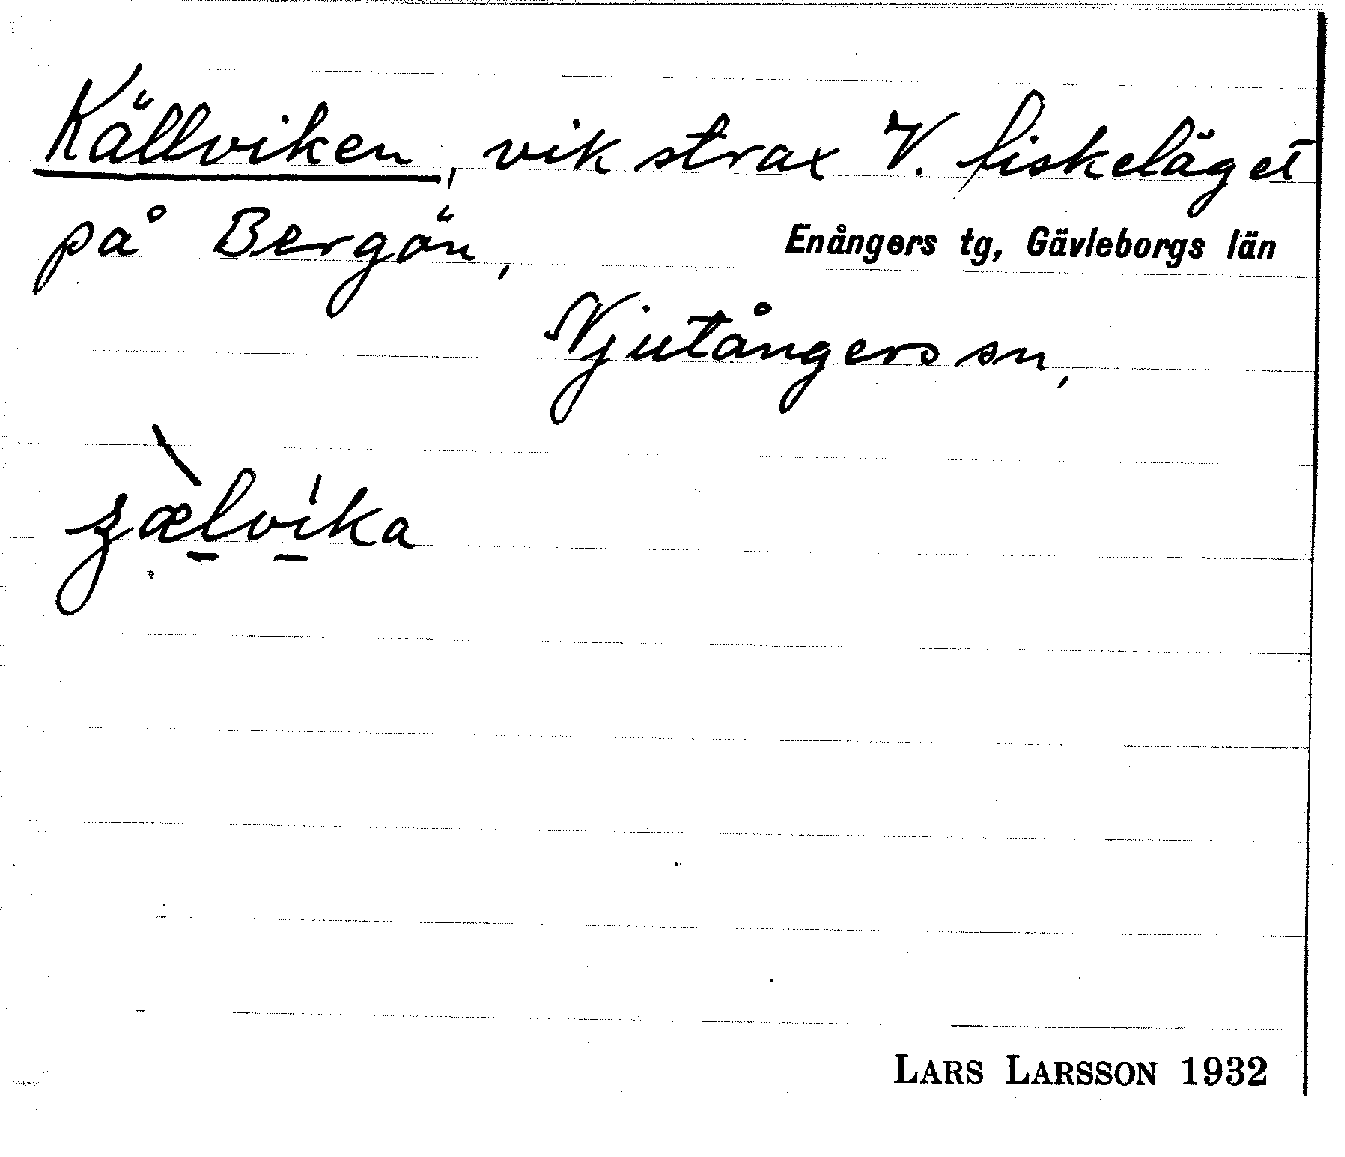 Källviken, vik strax V. fiskeläget
på Bergön, Enångers tg, Gävleborgs län
Njutångers sn,
LARS LARSSON 1932